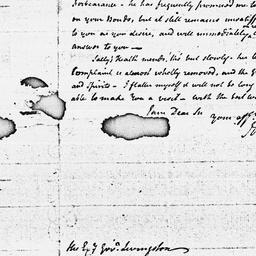 Forbearance - he has frequently promised me to
on your Bonds, but it still remains unsatisf
to you as you desire, and will immediately
answer to you —
Sally's Health mends, tho' but slowly - her
Complaint is almost wholly removed, and the
and Spirits - I flatter myself I will not be long
able to make you a visit - with the best
I am Dear Sir your aff
His Exy Govr. Livingston